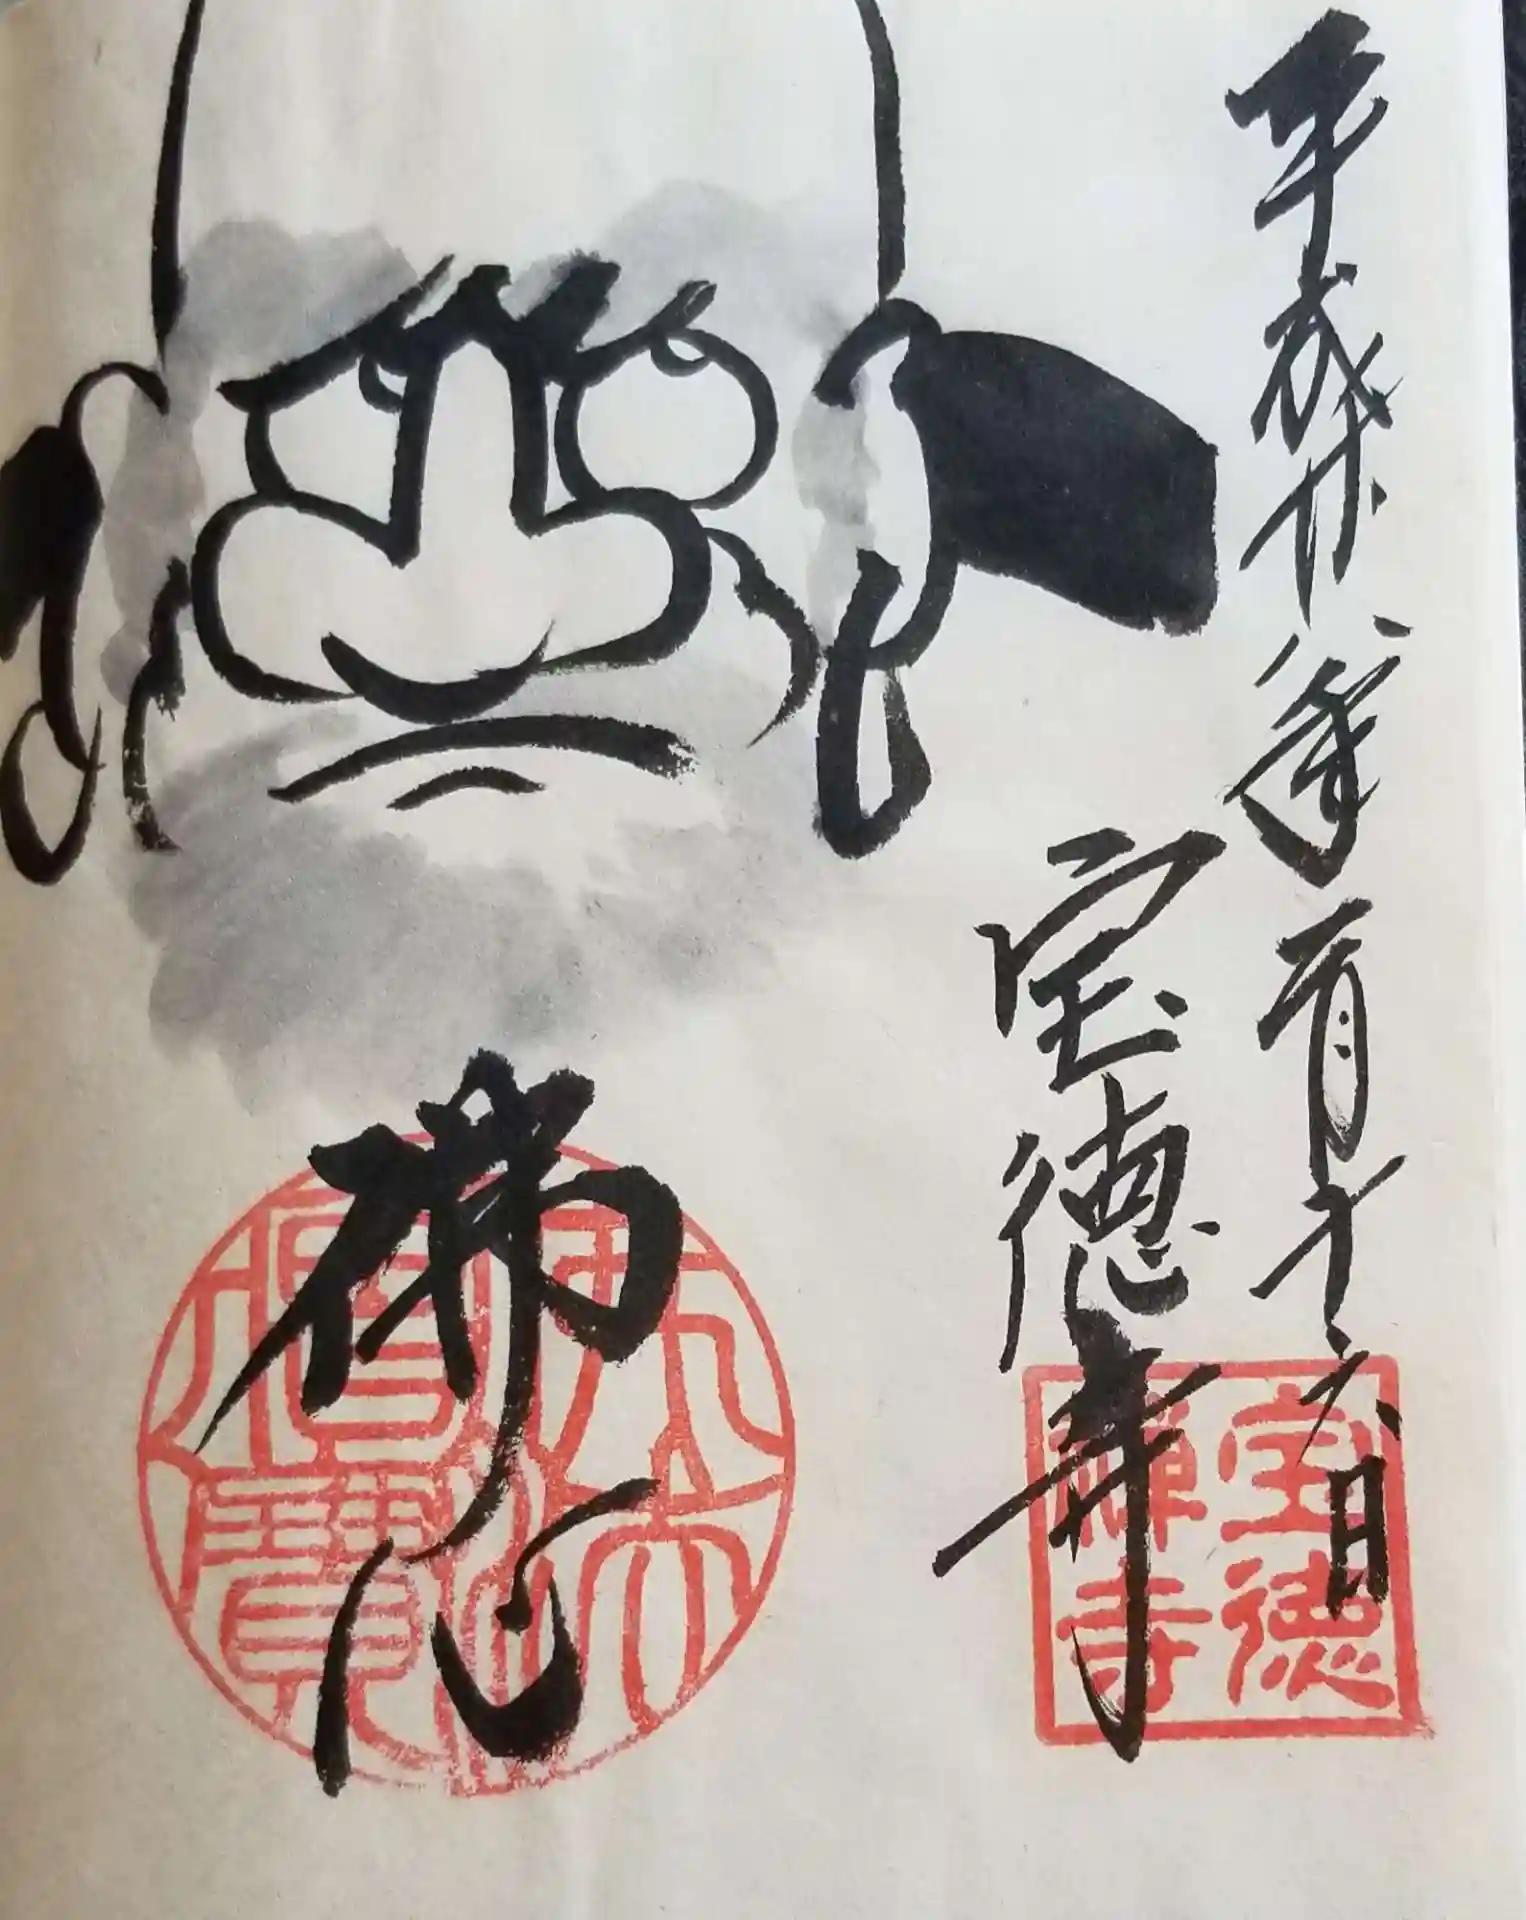 平成廿八年
十六日
宝徳寺
宝徳
禅寺
佛心